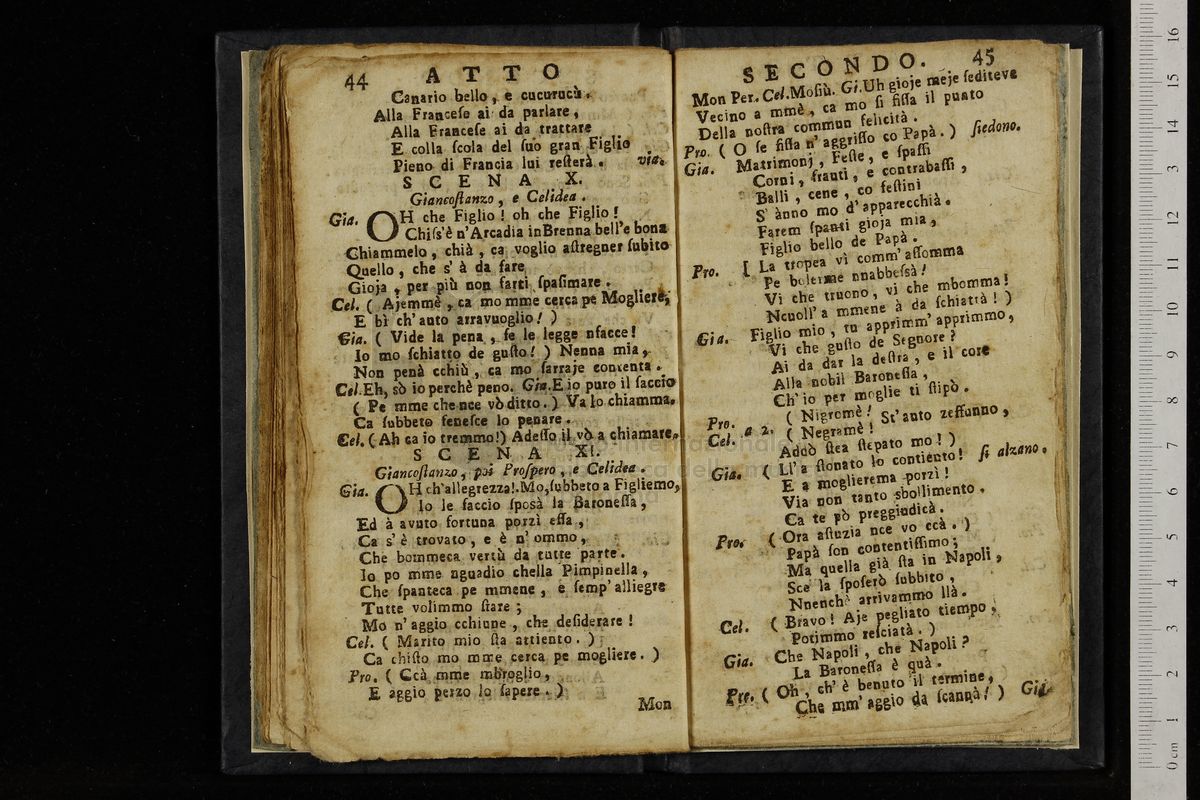 44 ATTO
Canario bello, e cucurucù.
Alla Franceſe ai da parlare,
Alla Franceſe ai da trattare
E colla ſcola del ſuo gran Figlio
Pieno di Francia lui reſterà. via.
SCENA X.
Giancoſtanzo, e Celidea.
Gia. OH che Figlio! oh che Figlio!
Chiſs'è n'Arcadia inBrenna bell'e bona
Chiammelo, chià, ca voglio aſtregner ſubito
Quello, che s' à da fare
Gioja, per più non farti ſpaſimare.
Cel. (Ajemmè, ca mo mme cerca pe Mogliere,
E bì ch'auto arravuoglio!)
Gia. (Vide la pena, ſe le legge nfacce!
Io mo ſchiatto de guſto!) Nenna mia,
Non penà cchiù, ca mo ſarraje contenta.
Cel. Eh, sò io perchè peno. Gia. E io puro il ſaccio
(Pe mme che nce vò ditto.) Va lo chiamma.
Ca ſubbeto feneſce lo penare.
Cel. (Ah ca io tremmo!) Adeſſo il vò a chiamare.
SCENA XI.
Giancoſtanzo, poi Proſpero, e Celidea.
Gia. OH ch'allegrezza!.Mo, ſubbeto a Figliemo,
Io le faccio ſposà la Baroneſſa,
Ed à avuto fortuna porzì eſſa,
Ca s'è trovato, e è n' ommo,
Che bommeca vertù da tutte parte.
Io po mme nguadio chella Pimpinella,
Che ſpanteca pe mmene, e ſemp' alliegre
Tutte volimmo ſtare;
Mo n'aggio cchiune, che deſiderare!
Cel. (Marito mio ſta attiento.)
Ca chiſto mo mme cerca pe mogliere.)
Pro. (Ccà mme mbroglio,
E aggio perzo lo ſapere.)
Mon
SECONDO. 45
Mon Per. Cel. Moſiù. Gi. Uh gioje meje ſediteve
Vecino a mmè, ca mo ſi fiſſa il punto
Della noſtra commun felicità.
Pro. (O ſe fiſſa n'aggriſſo co Papà.) ſiedono.
Gia. Matrimonj, Feſte, e ſpaſſi
Corni, frauti, e contrabaſſi,
Balli, cene, co feſtini
S' ànno mo d'apparecchià.
Farem ſpanti gioja mia,
Figlio bello de Papà.
Pro. [La tropea vì comm'aſſomma
Pe bolerme nnabbeſsà!
Vi che truono, vi che mbomma!
Ncuoll'a mmene à da ſchiattà!)
Gia. Figlio mio, tu apprimm'apprimmo,
Vi che guſto de Segnore?
Ai da dar la deſtra, e il core
Alla nobil Baroneſſa,
Ch'io per moglie ti ſtipò.
Pro. (Nigromè!
Cel. a 2. (Negramè! St'auto zeffunno,
Addò ſtea ſtepato mo!)
Gia. (Ll'a ſtonato lo contiento! ſi alzano.
E a moglierema porzì!
Via non tanto sbollimento,
Ca te pò preggiudicà.
Pro. (Ora aſtuzia nce vo ccà.)
Papà ſon contentiſſimo;
Ma quella già ſta in Napoli,
Sce la ſpoſerò ſubbito,
Nnenchè arrivammo llà.
Cel. (Bravo! Aje pegliato tiempo,
Potimmo reſciatà.)
Gia. Che Napoli, che Napoli?
La Baroneſſa è quà.
Pro. (Oh, ch'è benuto il termine,
Che mm'aggio da ſcannà!) Gia